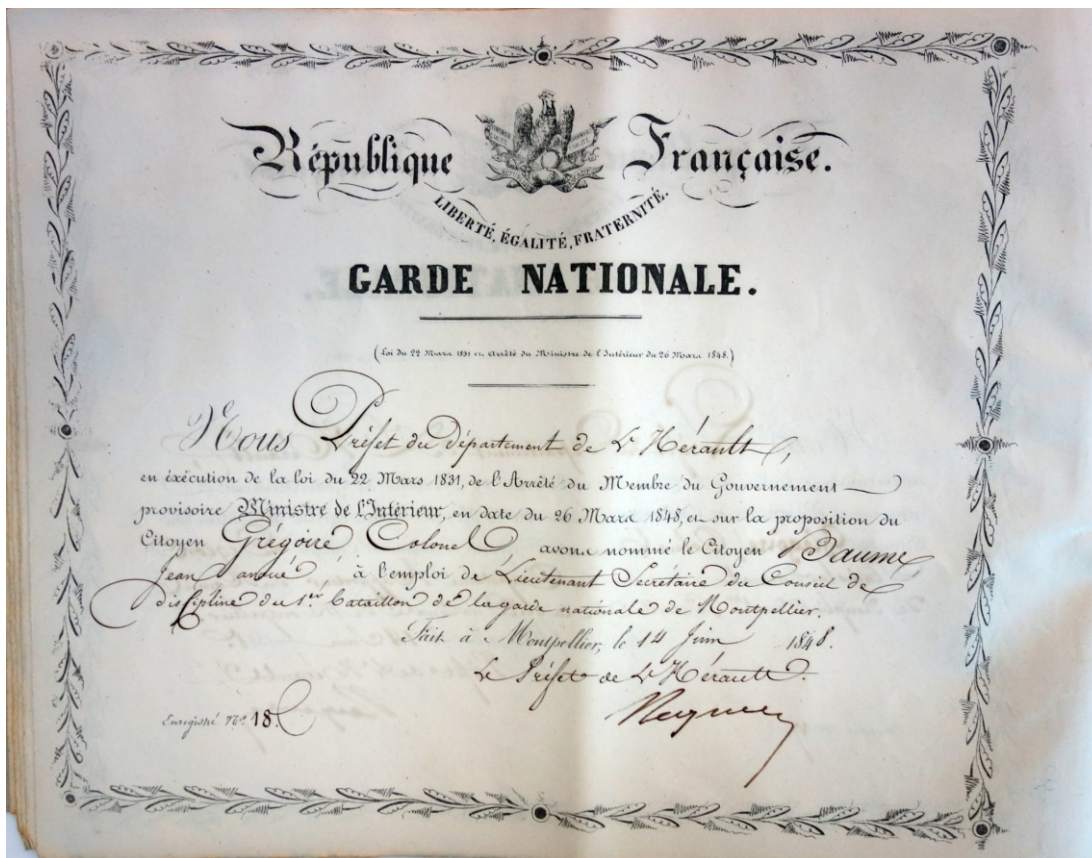 République Française.
LIBERTÉ, ÉGALITÉ, FRATERNITÉ.
GARDE NATIONALE.
(Loi du 22 Mars 1831 et Arrêté du Ministre de l'Intérieur du 26 Mars 1848.)
Nous Préfet du Département de L'Hérault,
en éxécution de la loi du 22 Mars 1831, de l'Arrêté du Membre du Gouvernement
provisoire Ministre de l'Intérieur, en date du 26 Mars 1848, et sur la proposition du
Citoyen Grégoire Colonel avons nommé le Citoyen Baume
Jean, avoué, à l'emploi de Lieutenant Secrétaire du Conseil de
discipline du 1er bataillon de la garde nationale de Montpellier.
Fait à Montpellier, le 14 Juin 1848.
Le Préfet de L'Hérault.
Enregistré No. 18